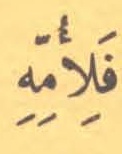 فَلِأُمِّهِ